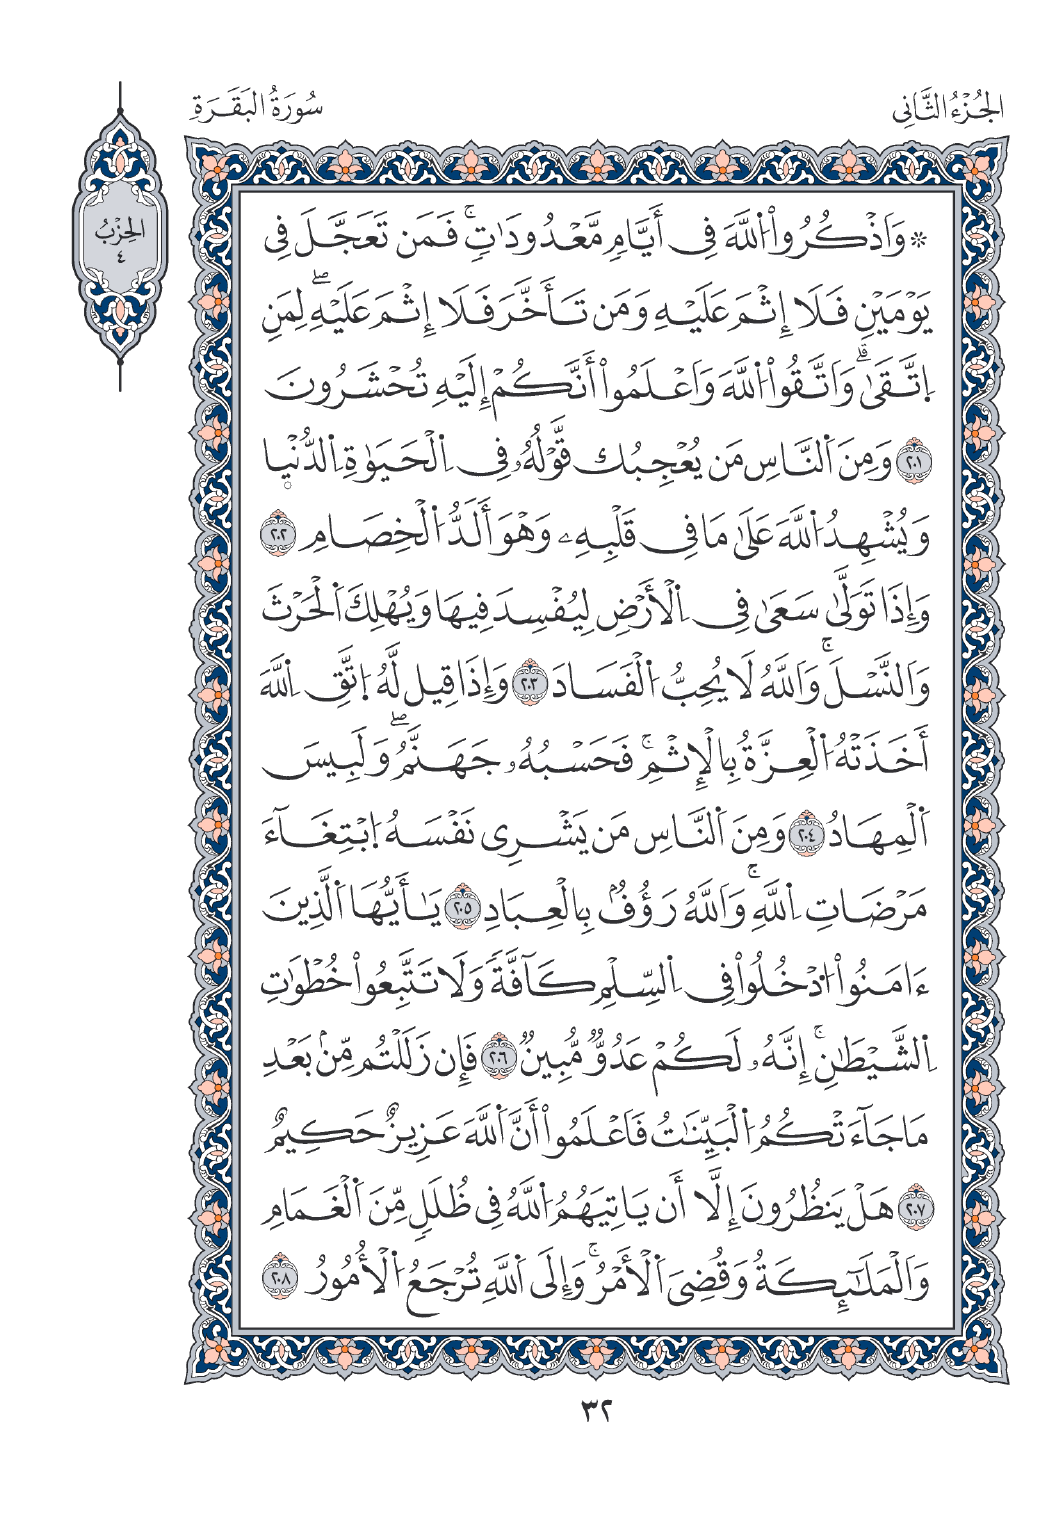 الجُزْءُ الثَّانِى
سُورَةُ البَقَرَةِ
الحِزْبُ
٤
۞ وَاَذْكُرُواْ اُللَّهَ فِى أَيَّامٍ مَّعْدُودَٰتٍۚ فَمَن تَعَجَّلَ فِى
يَوْمَيْنِ فَلَا إِثْمَ عَلَيْهِ وَمَن تَأَخَّرَ فَلَا إِثْمَ عَلَيْهِۖ لِمَنِ
اِتَّقَىٰۗ وَاَتَّقُواْ اُللَّهَ وَاَعْلَمُواْ أَنَّكُمْ إِلَيْهِ تُحْشَرُونَ
٢٠١ وَمِنَ اَلنَّاسِ مَن يُعْجِبُك قَّوْلُهُۥ فِى اِلْحَيَوٰةِ اِلدُّنْيٜا
وَيُشْهِدُ اُللَّهَ عَلَىٰ مَا فِى قَلْبِهِۦ وَهْوَ أَلَدُّ اُلْخِصَامِ ٢٠٢
وَإِذَا تَوَلَّىٰ سَعَىٰ فِى اِلْأَرْضِ لِيُفْسِدَ فِيهَا وَيُهْلِكَ اَلْحَرْثَ
وَالنَّسْلَۚ وَاَللَّهُ لَا يُحِبُّ اُلْفَسَادَ ٢٠٣ وَإِذَا قِيل لَّهُ اُتَّقِ اِللَّهَ
أَخَذَتْهُ اُلْعِزَّةُ بِالْإِثْمِۚ فَحَسْبُهُۥ جَهَنَّمُۖ وَلَبِيسَ
اَلْمِهَادُ ٢٠٤ وَمِنَ اَلنَّاسِ مَن يَشْرِى نَفْسَهُ اُبْتِغَآءَ
مَرْضَاتِ اِللَّهِۚ وَاَللَّهُ رَؤُفُۢ بِالْعِبَادِ ٢٠٥ يَٰأَيُّهَا اَلَّذِينَ
ءَامَنُواْ اُدْخُلُواْ فِى اِلسِّلْمِ كَآفَّةً وَلَا تَتَّبِعُواْ خُطْوَٰتِ
اِلشَّيْطَٰنِۚ إِنَّهُۥ لَكُمْ عَدُوٌّ مُّبِينٌ ٢٠٦ فَإِن زَلَلْتُم مِّنۢ بَعْدِ
مَا جَآءَتْكُمُ اُلْبَيِّنَٰتُ فَاَعْلَمُواْ أَنَّ اَللَّهَ عَزِيزٌ حَكِيمٌ
٢٠٧ هَلْ يَنظُرُونَ إِلَّا أَن يَاتِيَهُمُ اُللَّهُ فِى ظُلَلٍ مِّنَ اَلْغَمَامِ
وَالْمَلَٰٓئِكَةُ وَقُضِىَ اَلْأَمْرُۚ وَإِلَى اَللَّهِ تُرْجَعُ اُلْأُمُورُ ٢٠٨
٣٢